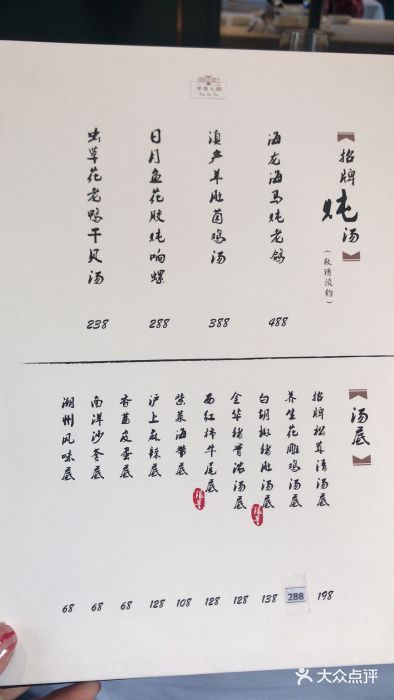 招牌炖汤
（敬请预约）
海龙海马炖老鸽
488
滇产羊肚菌鸡汤
388
日月鱼花胶炖响螺
288
虫草花老鸭干贝汤
238
汤底
招牌松茸清汤底
198
养生花雕鸡汤底
288
白胡椒猪肚汤底
138
金华猪骨浓汤底
128
西红柿牛尾底
128
紫菜海带底
108
沪上麻辣底
128
香菌皮蛋底
68
南洋沙爹底
68
潮州风味底
68
大众点评